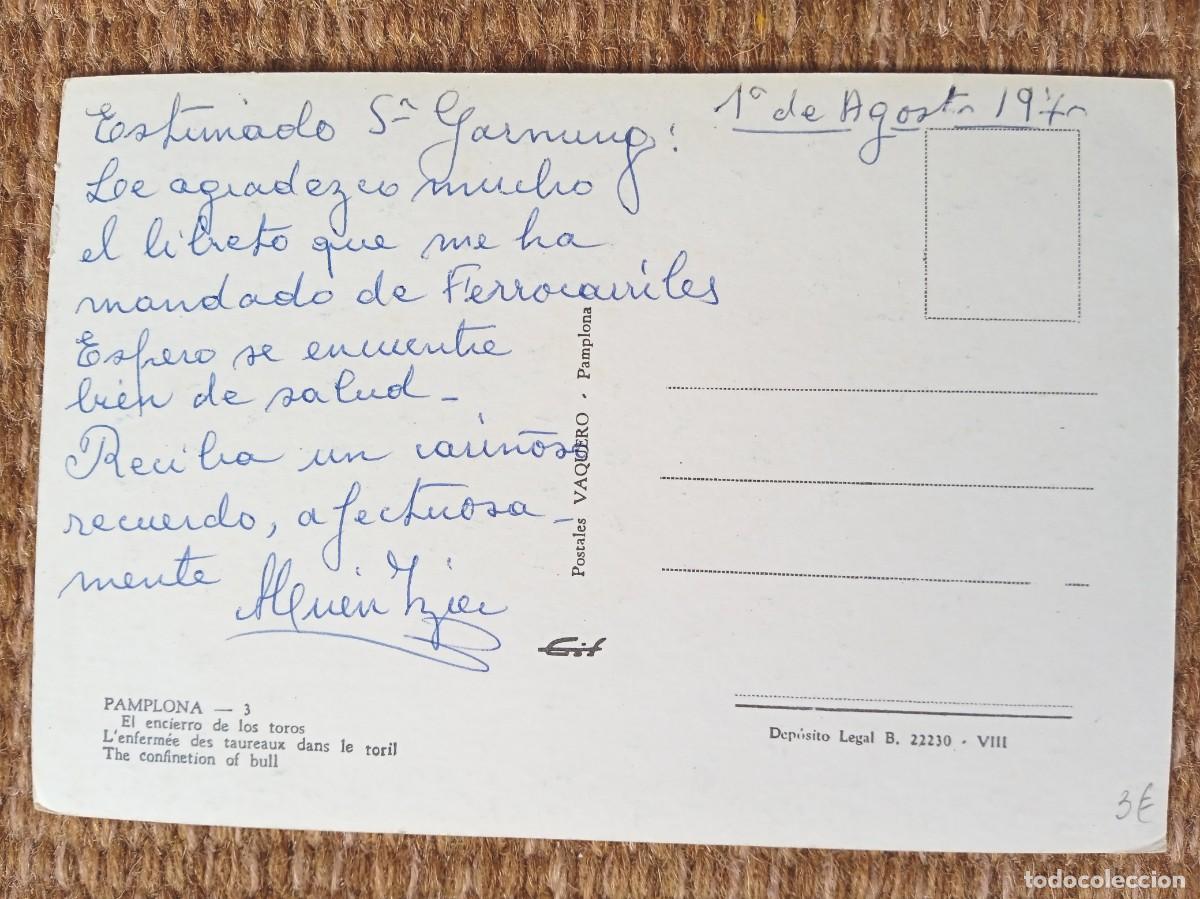 1º de Agosto 197
Estimado Sr Garnung:
Le agradezco mucho
el libreto que me ha
mandado de Ferrocarriles
Espero se encuentre
bien de salud -
Reciba un cariñoso
recuerdo, afectuosa-
mente
Postales VAQUERO - Pamplona
PAMPLONA — 3
El encierro de los toros
L'enfermée des taureaux dans le toril
The confinetion of bull
Depósito Legal B. 22230 - VIII
3€
todocoleccion